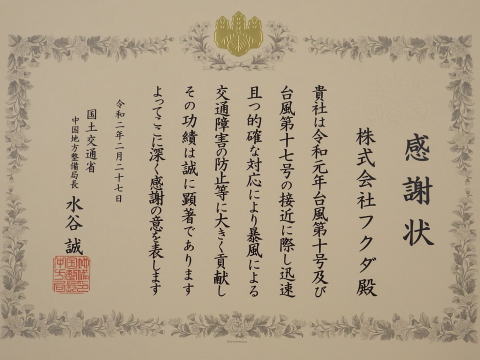 感謝状
株式会社フクダ殿
貴社は令和元年台風第十号及び
台風第十七号の接近に際し迅速
且つ的確な対応により暴風による
交通障害の防止等に大きく貢献し
その功績は誠に顕著であります
よってここに深く感謝の意を表します
令和二年二月二十七日
国土交通省
中国地方整備局長
水谷誠